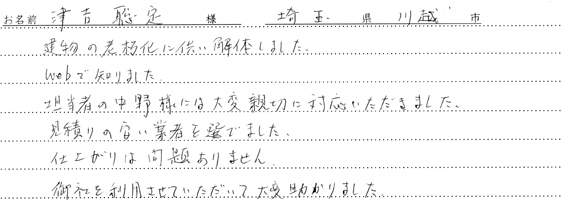 お名前 津吉 聡定 様 埼玉 県 川越 市
建物の老朽化に伴い解体しました.
webで知りました
担当者の中野様には大変親切に対応いただきました.
見積りの安い業者を選びました.
仕上がりは問題ありません
御社を利用させていただいて大変助かりました.